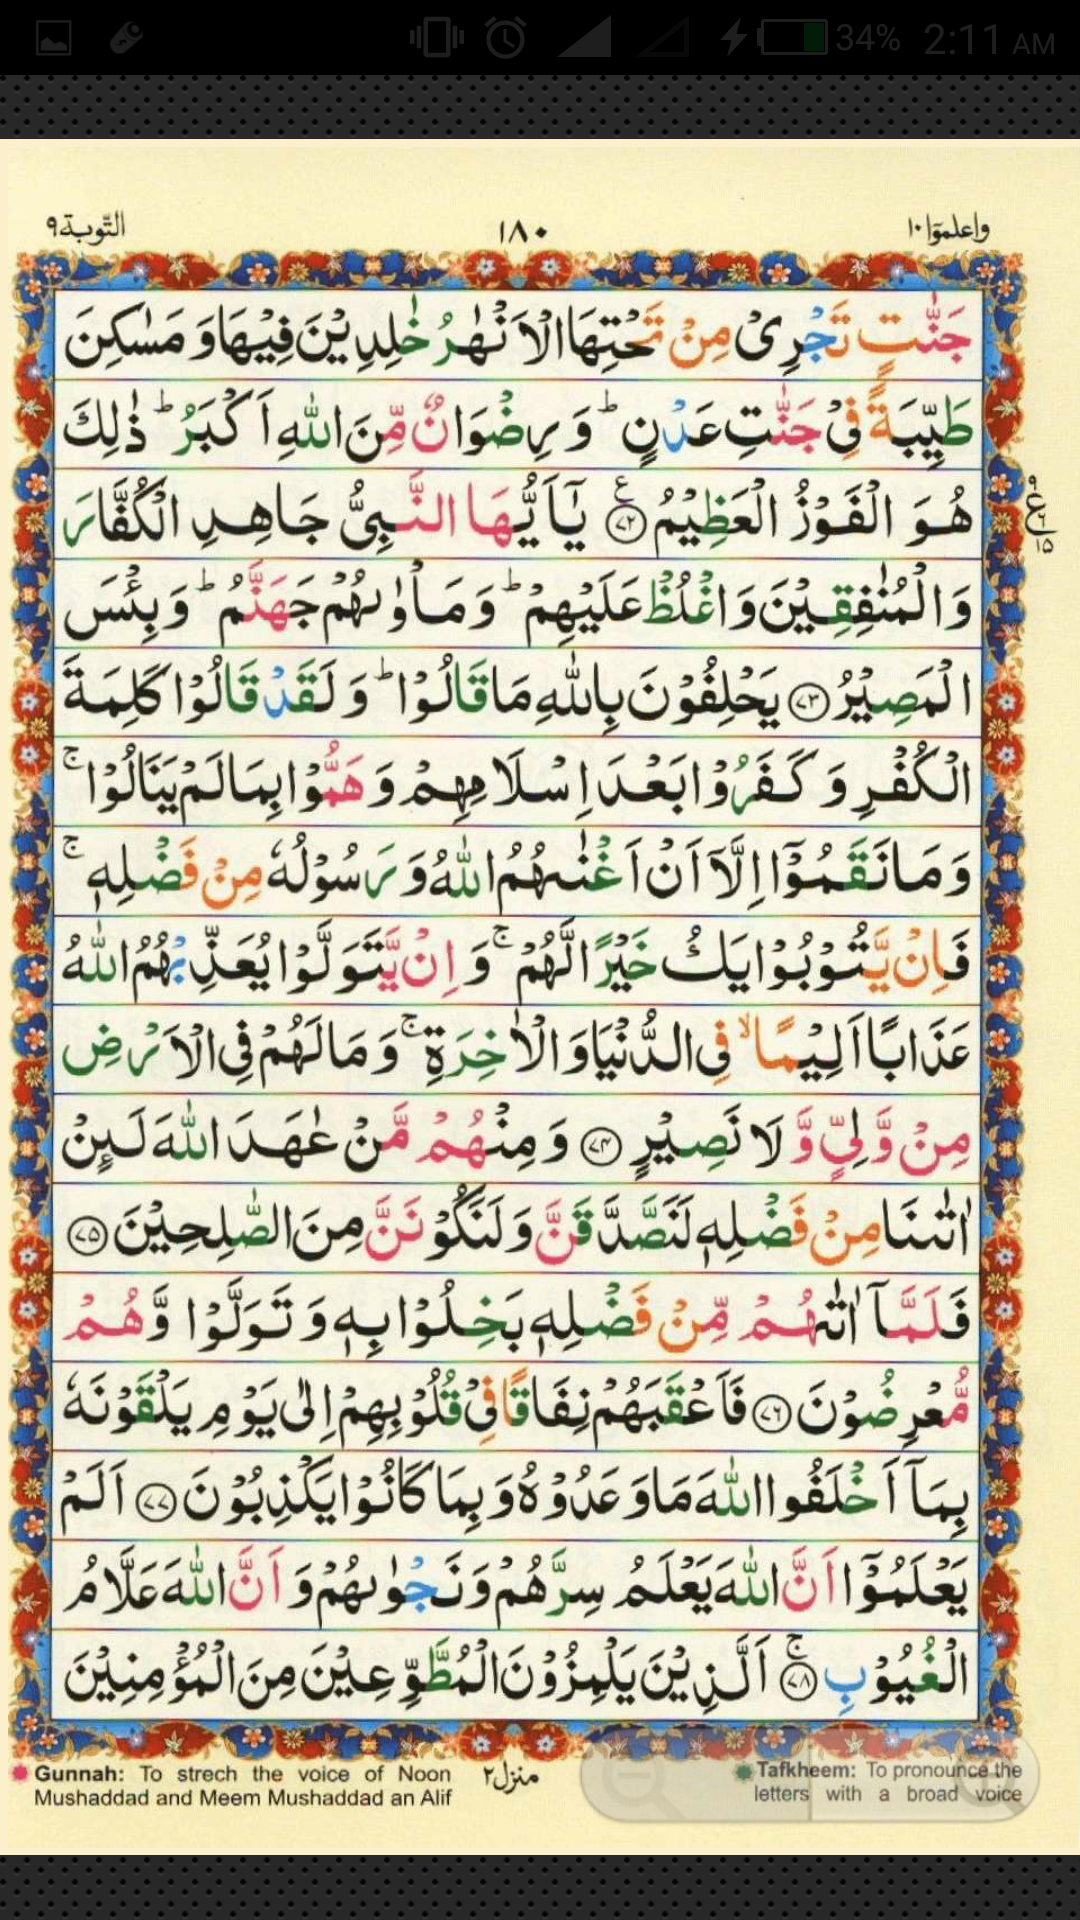 34% 2:11 AM
واعلموا١٠ ١٨٠ التّوبة٩
جَنّٰتٍ تَجْرِیْ مِنْ تَحْتِهَا الْاَنْهٰرُ خٰلِدِیْنَ فِیْهَا وَ مَسٰكِنَ
طَیِّبَةً فِیْ جَنّٰتِ عَدْنٍ ؕ وَ رِضْوَانٌ مِّنَ اللّٰهِ اَكْبَرُ ؕ ذٰلِكَ
هُوَ الْفَوْزُ الْعَظِیْمُ ﴿۷۲﴾ یٰۤاَیُّهَا النَّبِیُّ جَاهِدِ الْكُفَّارَ
ع ٩ ٦ ١٥
وَ الْمُنٰفِقِیْنَ وَ اغْلُظْ عَلَیْهِمْ ؕ وَ مَاْوٰىهُمْ جَهَنَّمُ ؕ وَ بِئْسَ
الْمَصِیْرُ ﴿۷۳﴾ یَحْلِفُوْنَ بِاللّٰهِ مَا قَالُوْا ؕ وَ لَقَدْ قَالُوْا كَلِمَةَ
الْكُفْرِ وَ كَفَرُوْا بَعْدَ اِسْلَامِهِمْ وَ هَمُّوْا بِمَا لَمْ یَنَالُوْا ۚ
وَ مَا نَقَمُوْۤا اِلَّاۤ اَنْ اَغْنٰىهُمُ اللّٰهُ وَ رَسُوْلُهٗ مِنْ فَضْلِهٖ ۚ
فَاِنْ یَّتُوْبُوْا یَكُ خَیْرًا لَّهُمْ ۚ وَ اِنْ یَّتَوَلَّوْا یُعَذِّبْهُمُ اللّٰهُ
عَذَابًا اَلِیْمًا ۙ فِی الدُّنْیَا وَ الْاٰخِرَةِ ۚ وَ مَا لَهُمْ فِی الْاَرْضِ
مِنْ وَّلِیٍّ وَّ لَا نَصِیْرٍ ﴿۷۴﴾ وَ مِنْهُمْ مَّنْ عٰهَدَ اللّٰهَ لَىِٕنْ
اٰتٰىنَا مِنْ فَضْلِهٖ لَنَصَّدَّقَنَّ وَ لَنَكُوْنَنَّ مِنَ الصّٰلِحِیْنَ ﴿۷۵﴾
فَلَمَّاۤ اٰتٰىهُمْ مِّنْ فَضْلِهٖ بَخِلُوْا بِهٖ وَ تَوَلَّوْا وَّ هُمْ
مُّعْرِضُوْنَ ﴿۷۶﴾ فَاَعْقَبَهُمْ نِفَاقًا فِیْ قُلُوْبِهِمْ اِلٰى یَوْمِ یَلْقَوْنَهٗ
بِمَاۤ اَخْلَفُوا اللّٰهَ مَا وَعَدُوْهُ وَ بِمَا كَانُوْا یَكْذِبُوْنَ ﴿۷۷﴾ اَلَمْ
یَعْلَمُوْۤا اَنَّ اللّٰهَ یَعْلَمُ سِرَّهُمْ وَ نَجْوٰىهُمْ وَ اَنَّ اللّٰهَ عَلَّامُ
الْغُیُوْبِ ﴿۷۸﴾ۚ اَلَّذِیْنَ یَلْمِزُوْنَ الْمُطَّوِّعِیْنَ مِنَ الْمُؤْمِنِیْنَ
منزل٢
Gunnah: To strech the voice of Noon
Mushaddad and Meem Mushaddad an Alif
Tafkheem: To pronounce the
letters with a broad voice